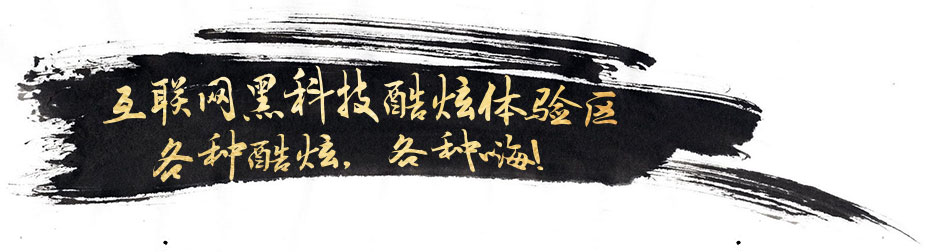 互联网黑科技酷炫体验区
各种酷炫，各种嗨！